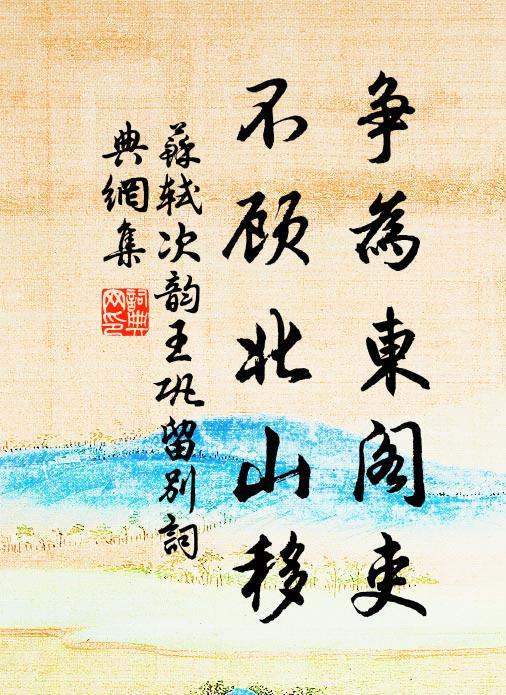 争為東阁吏
不顾北山移
蘇轼次韵王巩留别詞
典網集
詞典
网印